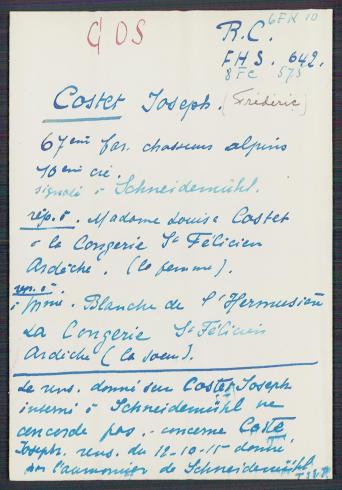 6FK 10
COS
R.C.
FHS. 642.
8FC 573
Costet Joseph. (Frédéric)
67ème bat. chasseurs alpins
10ème cie.
signalé à Schneidemühl.
rép. à. Madame Louise Costet
à la Congerie St Félicien
Ardèche. (la femme).
rep. à.
à Mme. Blanche de l'Hermusière
La Congerie St Félicien
Ardèche (la soeur).
Le rens. donné sur Costet Joseph
interné à Schneidemühl ne
concorde pas. - concerne Coste
Joseph. rens. du 12-10-15 donné
par l'aumonier de Schneidemühl